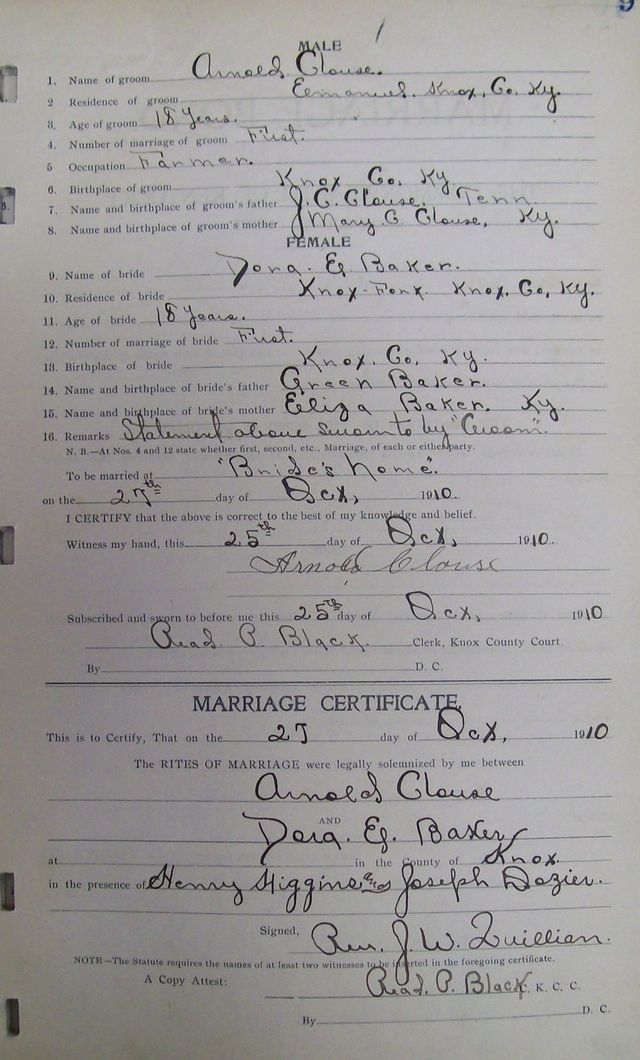 9
1
MALE
1. Name of groom Arnold Clouse.
2 Residence of groom Emanuel. Knox. Co. Ky.
3. Age of groom 18 Years.
4. Number of marriage of groom First.
5 Occupation Farmer.
6. Birthplace of groom Knox Co. Ky.
7. Name and birthplace of groom's father J. C. Clouse. Tenn.
8. Name and birthplace of groom's mother Mary C. Clouse, Ky.
FEMALE
9. Name of bride Dora. E. Baker.
10. Residence of bride Knox-Fork Knox. Co. Ky.
11. Age of bride 18 Years.
12. Number of marriage of bride First.
13. Birthplace of bride Knox. Co. Ky.
14. Name and birthplace of bride's father Green Baker.
15. Name and birthplace of bride's mother Eliza Baker. Ky.
16. Remarks Statement above sworn to by "Groom".
N. B.—At Nos. 4 and 12 state whether first, second, etc., Marriage, of each or either party.
To be married at "Bride's home".
on the 27th day of Oct, 1910.
I CERTIFY that the above is correct to the best of my knowledge and belief.
Witness my hand, this 25th day of Oct, 1910.
Arnold Clouse
Subscribed and sworn to before me this 25th day of Oct, 1910
Read. P. Black. Clerk, Knox County Court.
By D. C.
MARRIAGE CERTIFICATE.
This is to Certify, That on the 27 day of Oct, 1910
The RITES OF MARRIAGE were legally solemnized by me between
Arnold Clouse
AND
Dora. E. Baker
at in the County of Knox
in the presence of Henry Higgins and Joseph Dozier.
Signed, Rev. J. W. Quillian.
NOTE—The Statute requires the names of at least two witnesses to be inserted in the foregoing certificate.
A Copy Attest: Read. P. Black C. K. C. C.
By D. C.